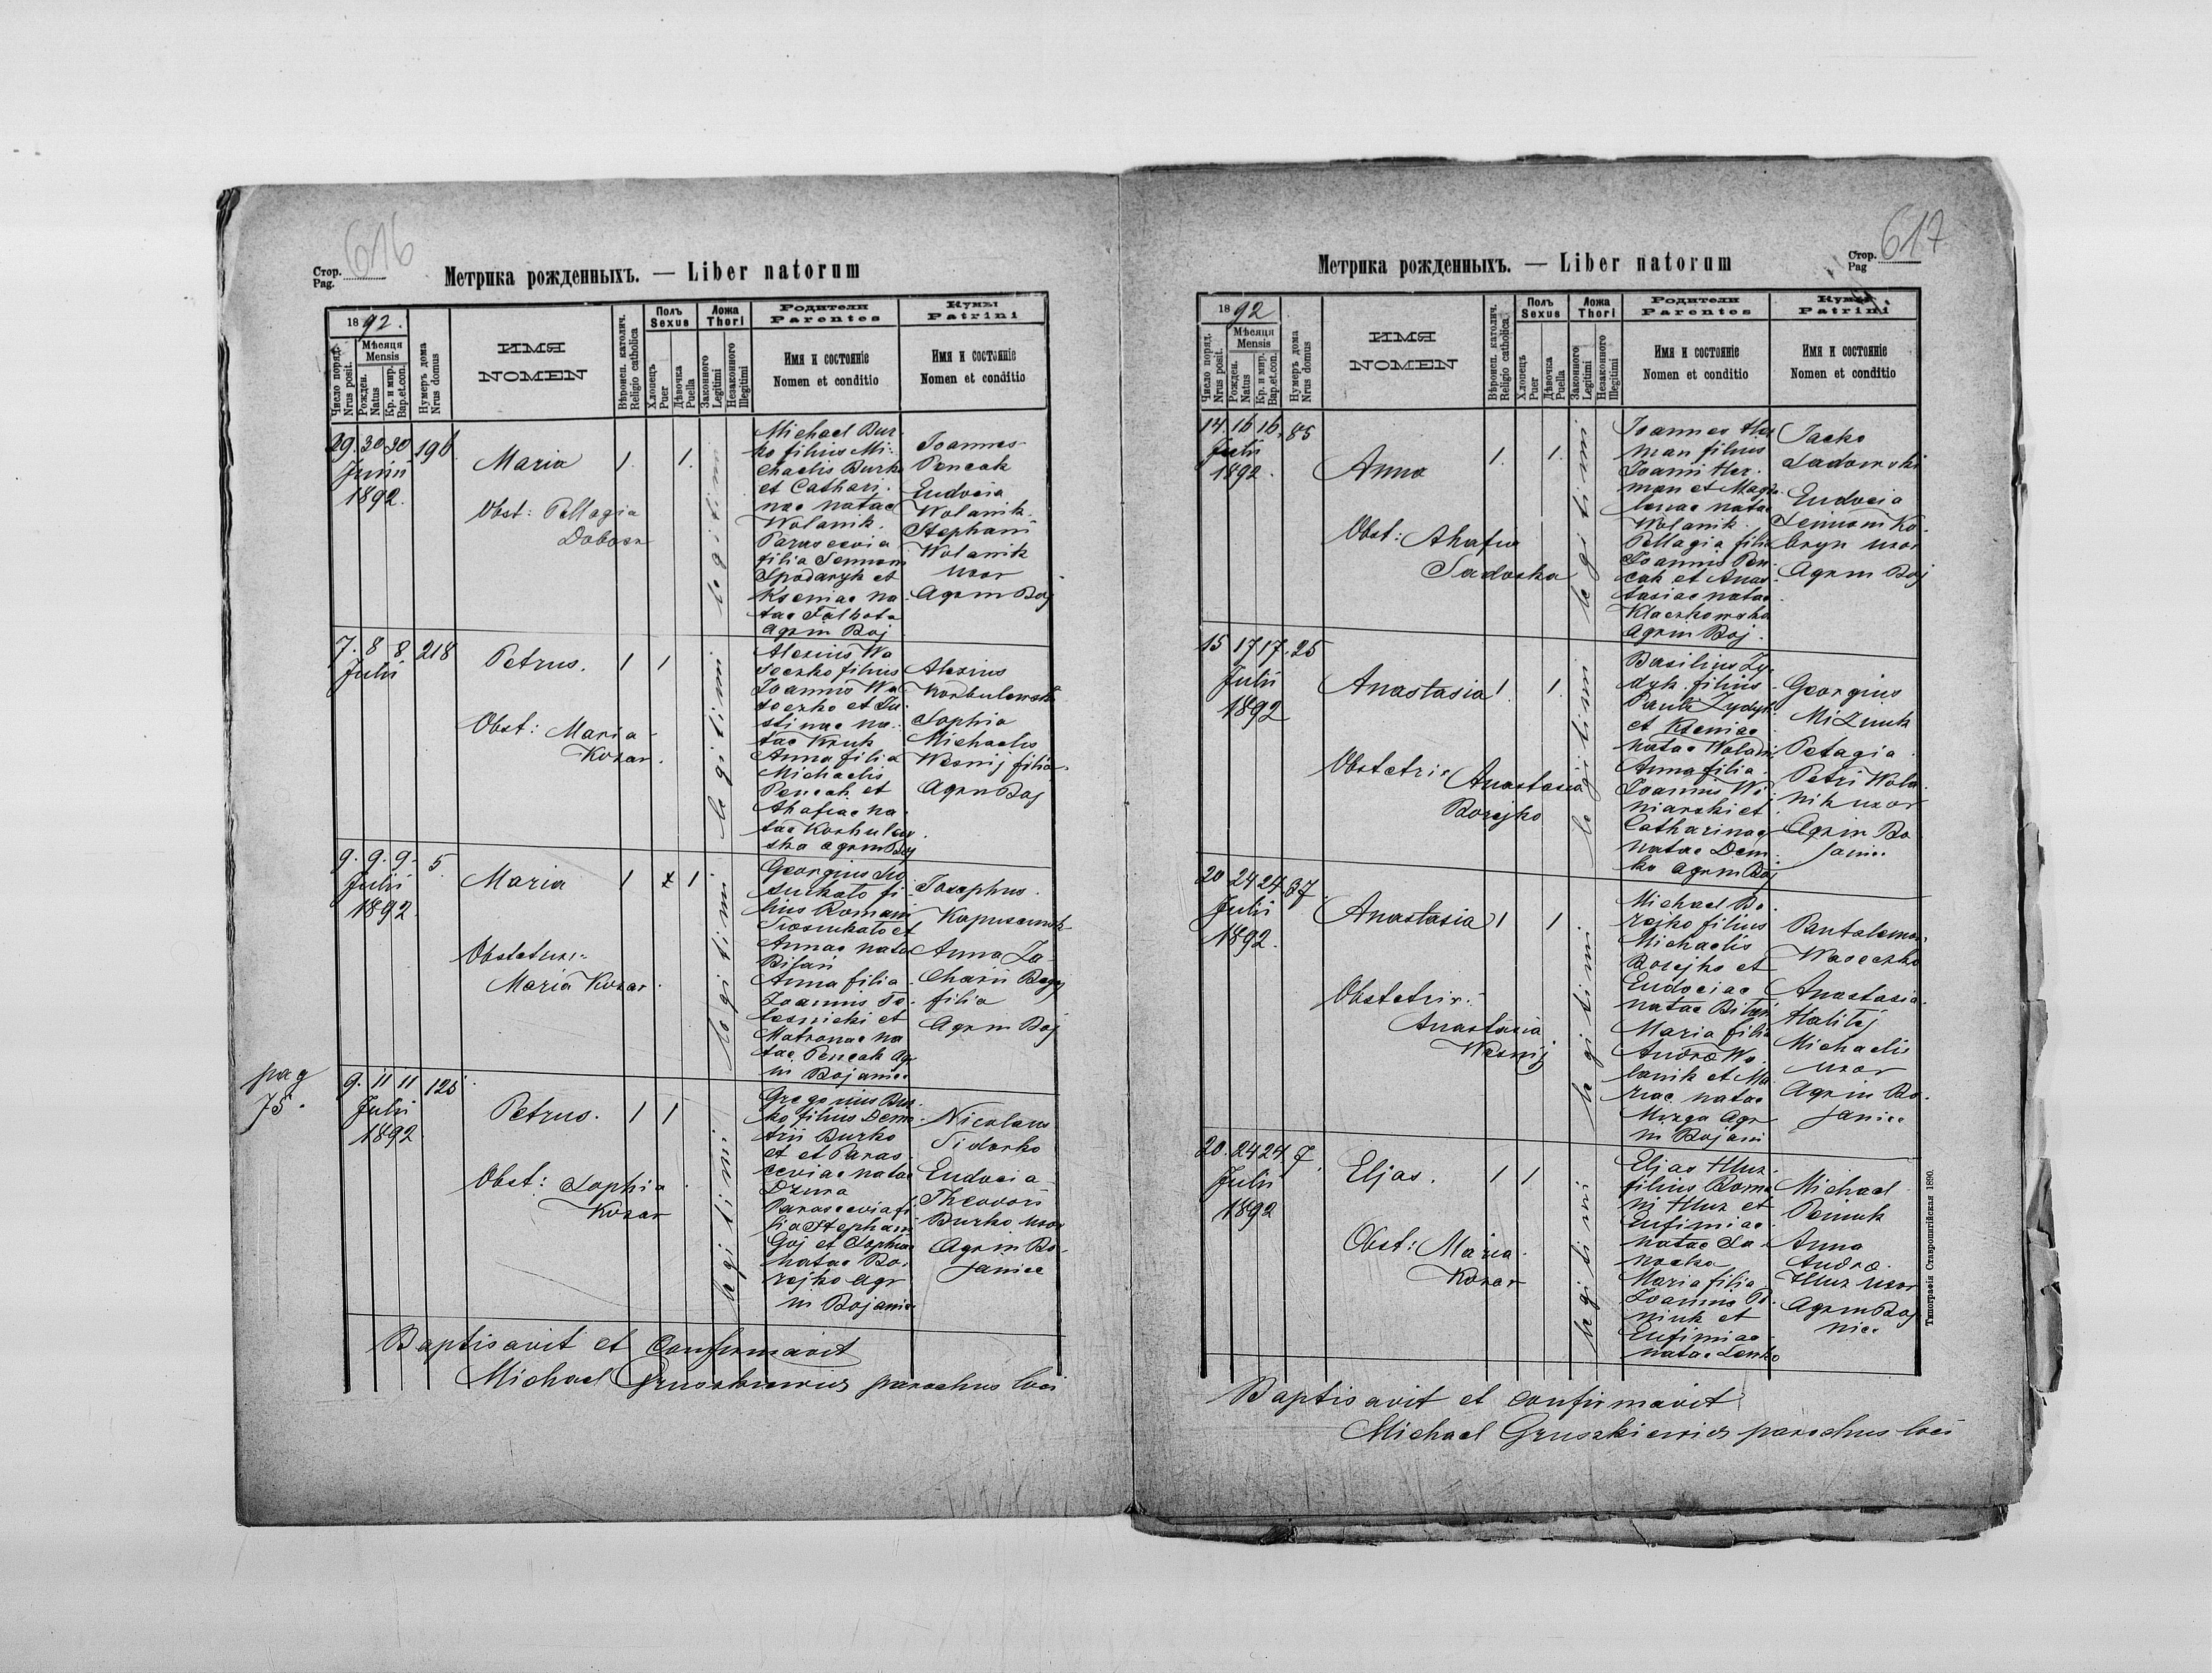 616
Стор.
Pag.
Метрика рожденныхъ. — Liber natorum
1892.
Число поряд.
Nrus posit.
Мѣсяця
Mensis
Рожден.
Natus
Кр. и мир.
Bap.et.con.
Нумеръ дома
Nrus domus
ИМЯ
NOMEN
Вѣронсп. католич.
Religio catholica
Полъ
Sexus
Хлопецъ
Puer
Дѣвочка
Puella
Ложа
Thori
Законного
Legitimi
Незаконного
Illegitimi
Родители
Parentes
Имя и состояніе
Nomen et conditio
Кумы
Patrini
Имя и состояніе
Nomen et conditio
29. 30 30 196
Junii
1892.
Maria
1. 1.
Obst: Pellagia
Dobosz
legitimi
Michael Bur
ko filius Mi-
chaelis Burko
et Cathari-
nae natae
Wolanik.
Parascevia
filia Semioni
Spodaryk et
Kseniae na-
tae Falbota
Agr in Boj
Joannes
Pencak
Eudocia
Wolanik.
Stephani
Wolanik
uxor
Agr in Boj
7. 8 8 218
Julii
Petrus. 1 1
Obst: Maria
Kozar.
legitimi
Alexius Wa
seczko filius
Joannis Wa
seczko et Ju-
stinae na-
tae Kruk
Anna filia
Michaelis
Pencak et
Ahafiae na-
tae Korbulew
ska agr in Boj
Alexius
Korbulewski
Sophia
Michaelis
Wesnij filia
Agr in Boj
9. 9. 9. 5.
Julii
1892.
Maria 1 1
Obstetrix:
Maria Kozar.
legitimi
Georgius
filius Romani
et
Annae natae
Anna filia
Joannis
lesnicki et
Matronae na
tae Pencak Agr
in Bojanice
Josephus
Anna Za-
charii
filia
Agr in Boj
pag
75.
9. 11 11 125
Julii
1892
Petrus. 1 1
Obst: Sophia
Kozar
legitimi
Gregorius Bur-
ko filius Deme
trii Burko
et et Paras-
ceviae natae
Dzura
Parascevia fi
lia Stephani
Goj et Sophiae
natae Bo-
rejko Agr
in Bojanice
Nicolaus
Sidorko
Eudocia
Theodori
Burko uxor
Agr in Bo-
janice
Baptisavit et Confirmavit
Michael Gruszkiewicz parochus loci
617
Стор.
Pag
Метрика рожденныхъ. — Liber natorum
1892
Число поряд.
Nrus posit.
Мѣсяця
Mensis
Рожден.
Natus
Кр. и мир.
Bap.et.con.
Нумеръ дома
Nrus domus
ИМЯ
NOMEN
Вѣронсп. католич.
Religio catholica
Полъ
Sexus
Хлопецъ
Puer
Дѣвочка
Puella
Ложа
Thori
Законного
Legitimi
Незаконного
Illegitimi
Родители
Parentes
Имя и состояніе
Nomen et conditio
Кумы
Patrini
Имя и состояніе
Nomen et conditio
14. 16 16. 85
Julii
1892.
Anna 1. 1.
Obst: Ahafia
Sadoska
legitimi
Joannes Her
man filius
Joanni Her-
man et Magda
lenae natae
Wolanik.
Pellagia filia
Joannis Pen-
cak et Anas-
tasiae natae
Klaczkowska
Agr in Boj.
Jacko
Sadowski
Eudocia
Semioni Ko-
bryn uxor
Agr in Boj
15 17 17. 25
Julii
1892
Anastasia 1. 1.
Obstetrix
Anastasia
Borejko
legitimi
Basilius Zy-
dyk filius
Pauli Zydyk
et Kseniae
natae Wolani
Anna filia
Joannis Wi
niarski et
Catharinae
natae Dem-
ko Agr in Boj
Georgius
Miziuk
Pelagia
Petri Wola
nik uxor
Agr in Bo
janice
20 24 24 37
Julii
1892.
Anastasia 1 1
Obstetrix:
Anastasia
Wesnij
legitimi
Michael Bo-
rejko filius
Michaelis
Borejko et
Eudociae
natae
Maria filia
Andreae Wo-
lanik et Ma-
riae natae
Mirga Agr
in Bojani
Pantalemon
Waseczko
Anastasia
Halitij
Michaelis
uxor
Agr in Bo-
janice
20. 24 24. 7.
Julii
1892
Eljas. 1 1
Obst: Maria
Kozar
legitimi
Eljas Hluz
filius Roma
ni Hluz et
Eufimiae
natae Sa-
nocka
Maria filia
Joannis Pi-
niuk et
Eufimiae
natae Senko
Michael
Piniuk
Anna
Andreae
Hluz uxor
Agr in Boj
nice
Baptisavit et confirmavit
Michael Gruszkiewicz parochus loci
Типографія Ставропигійская 1890.